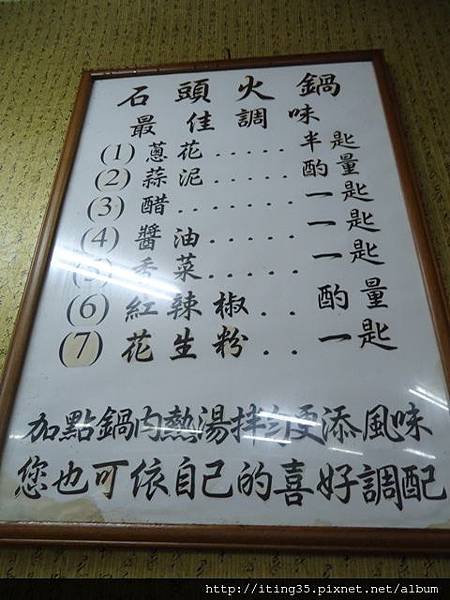 石頭火鍋
最佳調味
(1) 蔥花.....半匙
(2) 蒜泥.....酌量
(3) 醋........一匙
(4) 醬油.....一匙
(5) 香菜.....一匙
(6) 紅辣椒..酌量
(7) 花生粉..一匙
加點鍋內熱湯拌勻更添風味
您也可依自己的喜好調配
http://iting35.pixnet.net/album